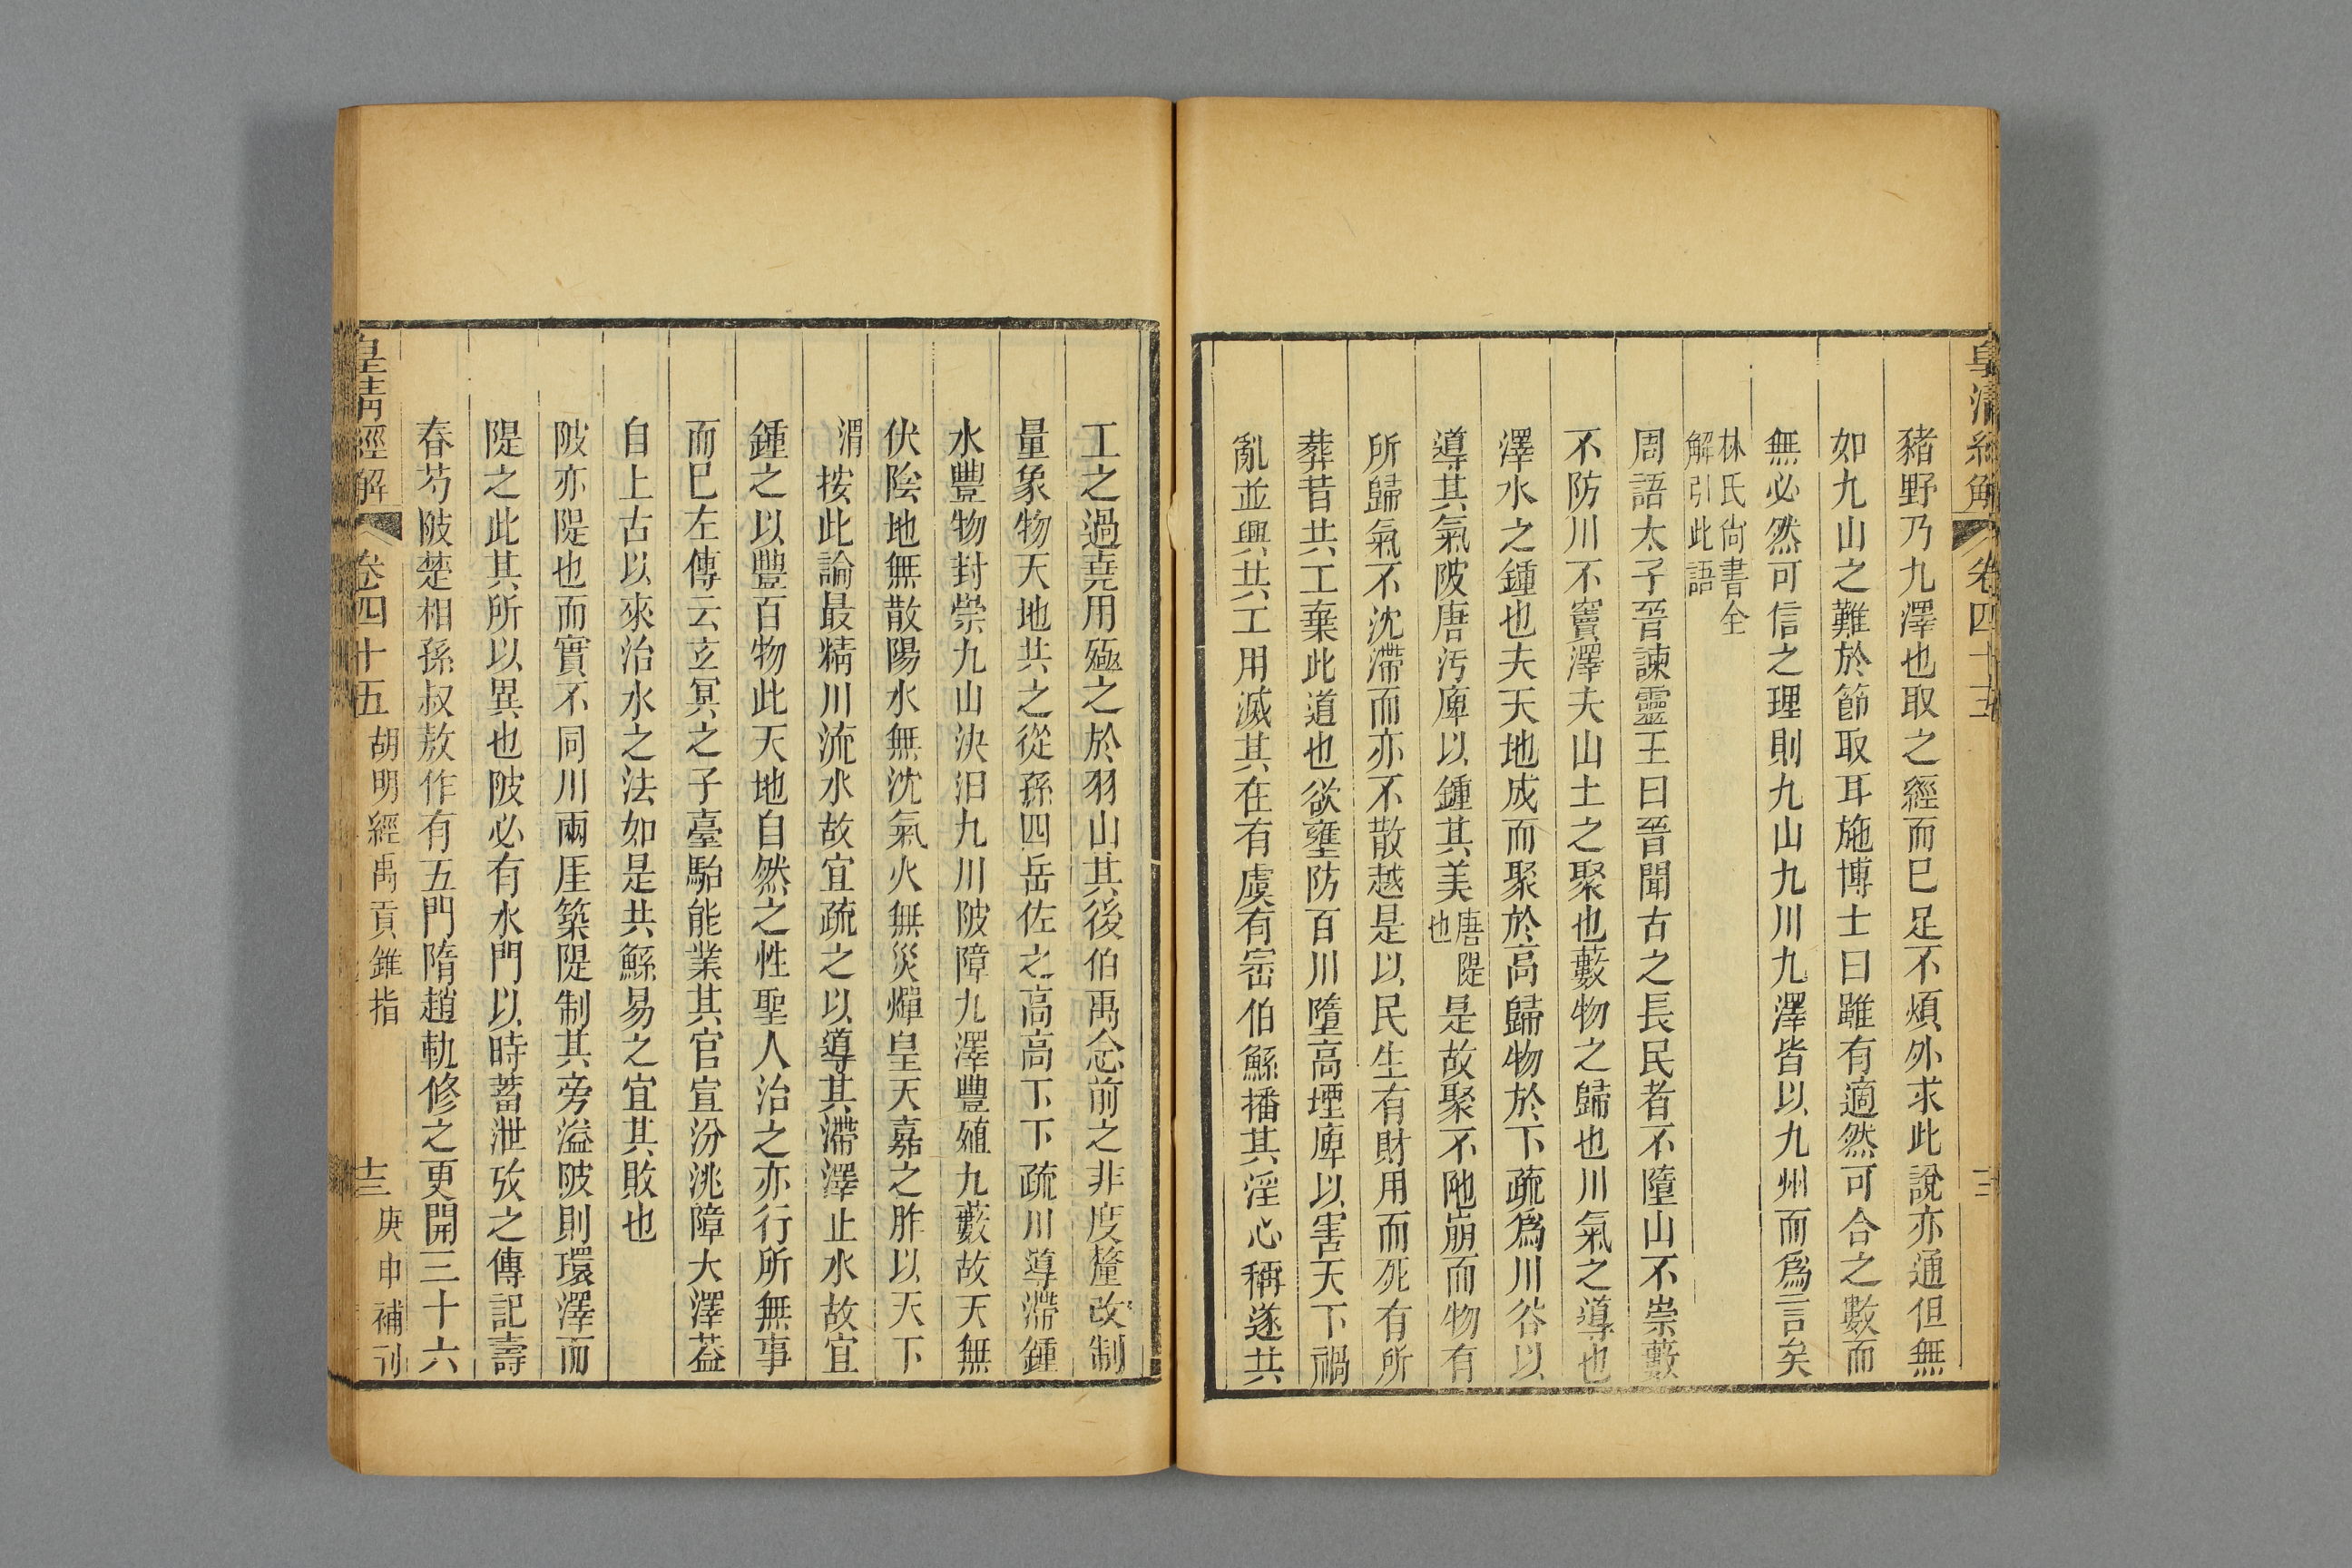 皇清經解
卷四十五
豬野乃九澤也取之經而已足不煩外求此說亦通但無
如九山之難於節取耳施博士曰雖有適然可合之數而
無必然可信之理則九山九川九澤皆以九州而爲言矣
林氏尙書全
解引此語
周語太子晉諫靈王曰晉聞古之長民者不墮山不崇藪
不防川不竇澤夫山土之聚也藪物之歸也川氣之導也
澤水之鍾也夫天地成而聚於高歸物於下疏爲川谷以
導其氣陂唐汚庳以鍾其美唐隄也是故聚不阤崩而物有
所歸氣不沈滯而亦不散越是以民生有財用而死有所
葬昔共工棄此道也欲壅防百川墮高堙庳以害天下禍
亂並興共工用滅其在有虞有崇伯鯀播其淫心稱遂共
工之過堯用殛之於羽山其後伯禹念前之非度釐改制
量象物天地共之從孫四岳佐之高高下下疏川導滯鍾
水豐物封崇九山決汩九川陂障九澤豐殖九藪故天無
伏陰地無散陽水無沈氣火無災燀皇天嘉之胙以天下
渭按此論最精川流水故宜疏之以導其滯澤止水故宜
鍾之以豐百物此天地自然之性聖人治之亦行所無事
而已左傳云玄冥之子臺駘能業其官宣汾洮障大澤葢
自上古以來治水之法如是共鯀易之宜其敗也
陂亦隄也而實不同川兩厓築隄制其旁溢陂則環澤而
隄之此其所以異也陂必有水門以時蓄泄攷之傳記壽
春芍陂楚相孫叔敖作有五門隋趙軌修之更開三十六
皇清經解
卷四十五
胡明經禹貢錐指
十三
庚申補刊